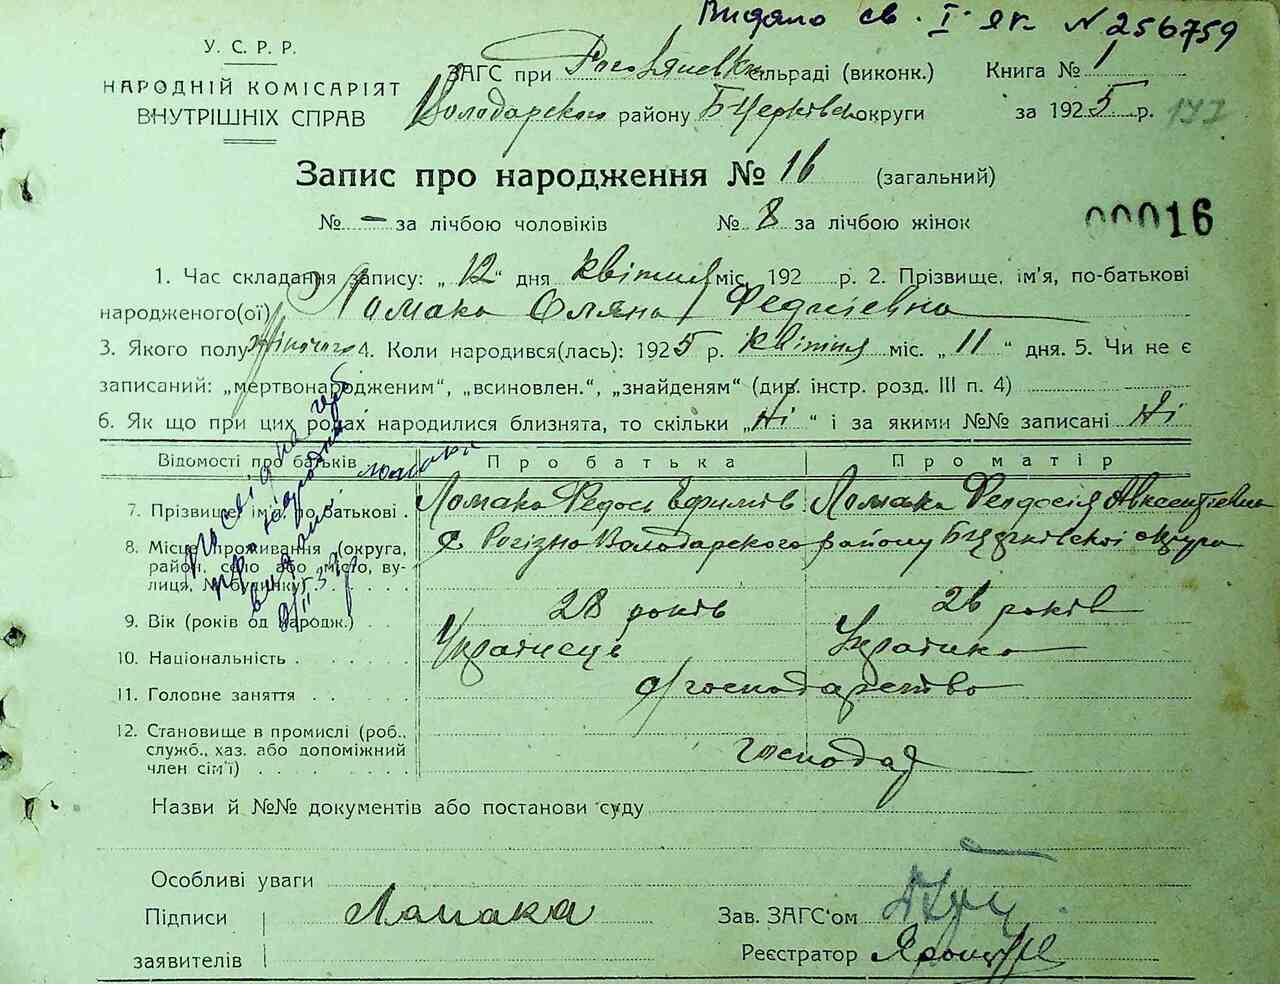 Видано св. І. я г. N 256759
У. С. Р. Р.
НАРОДНІЙ КОМІСАРІЯТ
ВНУТРІШНІХ СПРАВ
ЗАГС при сільраді (виконк.) Книга № 1
Володарского району БЦерківс округи за 1925 р. 177
Запис про народження № 16 (загальний)
№ – за лічбою чоловіків № 8 за лічбою жінок
00016
1. Час складання запису: „12“ дня квітня міс. 192 р. 2. Прізвище, ім'я, по-батькові
народженого(ої) Ломака Оляна Федосіевна
3. Якого полу жіночого 4. Коли народився(лась): 1925 р. квітня міс. „11“ дня. 5. Чи не є
записаний: „мертвонародженим“, „всиновлен.“, „знайденям“ (див. інстр. розд. III п. 4)
6. Як що при цих родах народилися близнята, то скільки „Ні“ і за якими №№ записані Ні
Відомості про батьків Про батька Про матір
7. Прізвище, ім'я, по батькові . Ломака Федось Ефимів Ломака Феодосія Авксентіевна
8. Місце проживання (округа, район, село або місто, вулиця, № будинку) с. Рогізна Володарского району округи
9. Вік (років од народж.) 28 років 26 років
10. Національність . . . . . Українець Українка
11. Головне заняття . . . . господарство
12. Становище в промислі (роб., служб., хаз. або допоміжний член сім'ї) . . . . . господар
Назви й №№ документів або постанови суду
Особливі уваги
Підписи Ломака Зав. ЗАГС'ом
заявителів Реєстратор